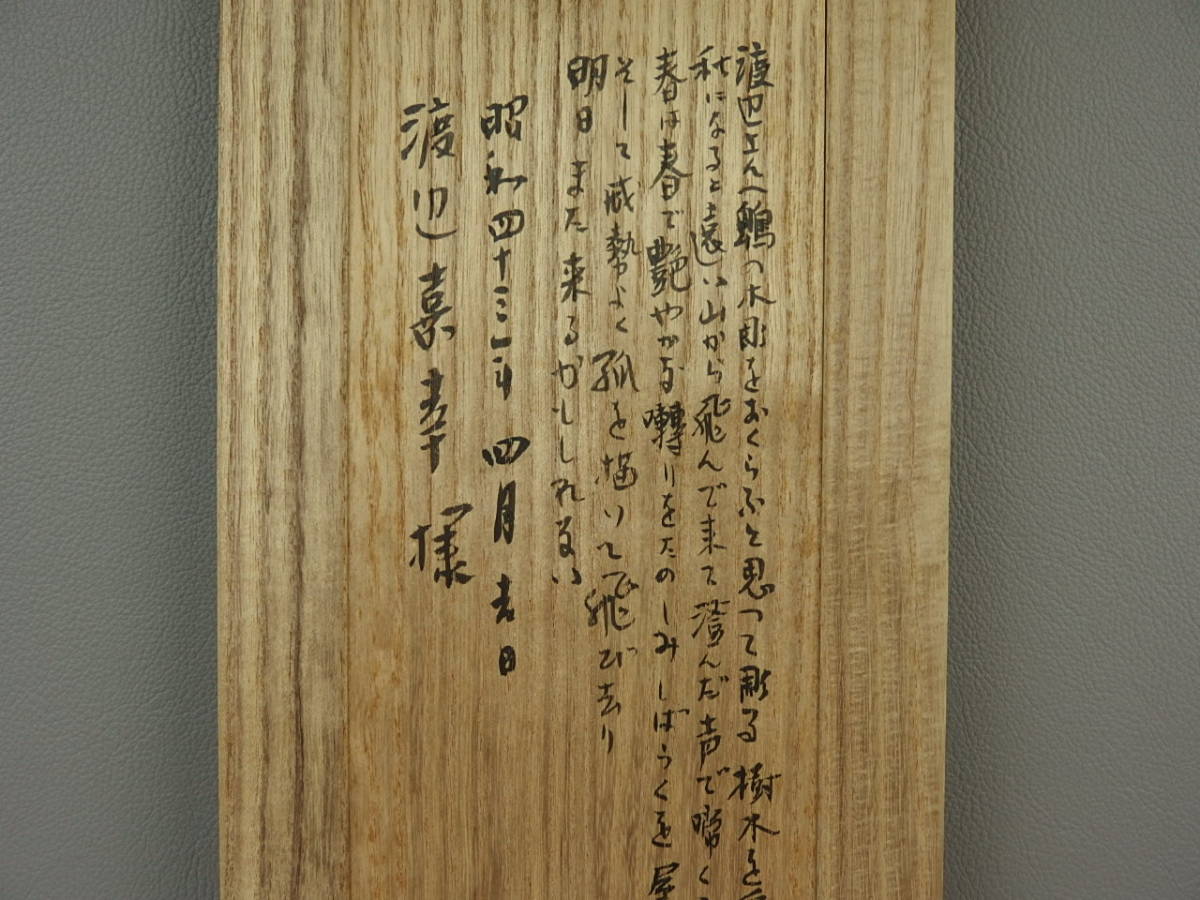 渡辺さんへ鵯の木彫をおくらふと思つて彫る 樹木を
秋になると遠い山から飛んで来て澄んだ声で啼く
春は春で艶やかな囀りをたのしみしばらくを 屋
そして威勢よく弧を描いて飛び去り
明日 また来るかもしれない
昭和四十三年 四月 吉日
渡辺 喜幸 様